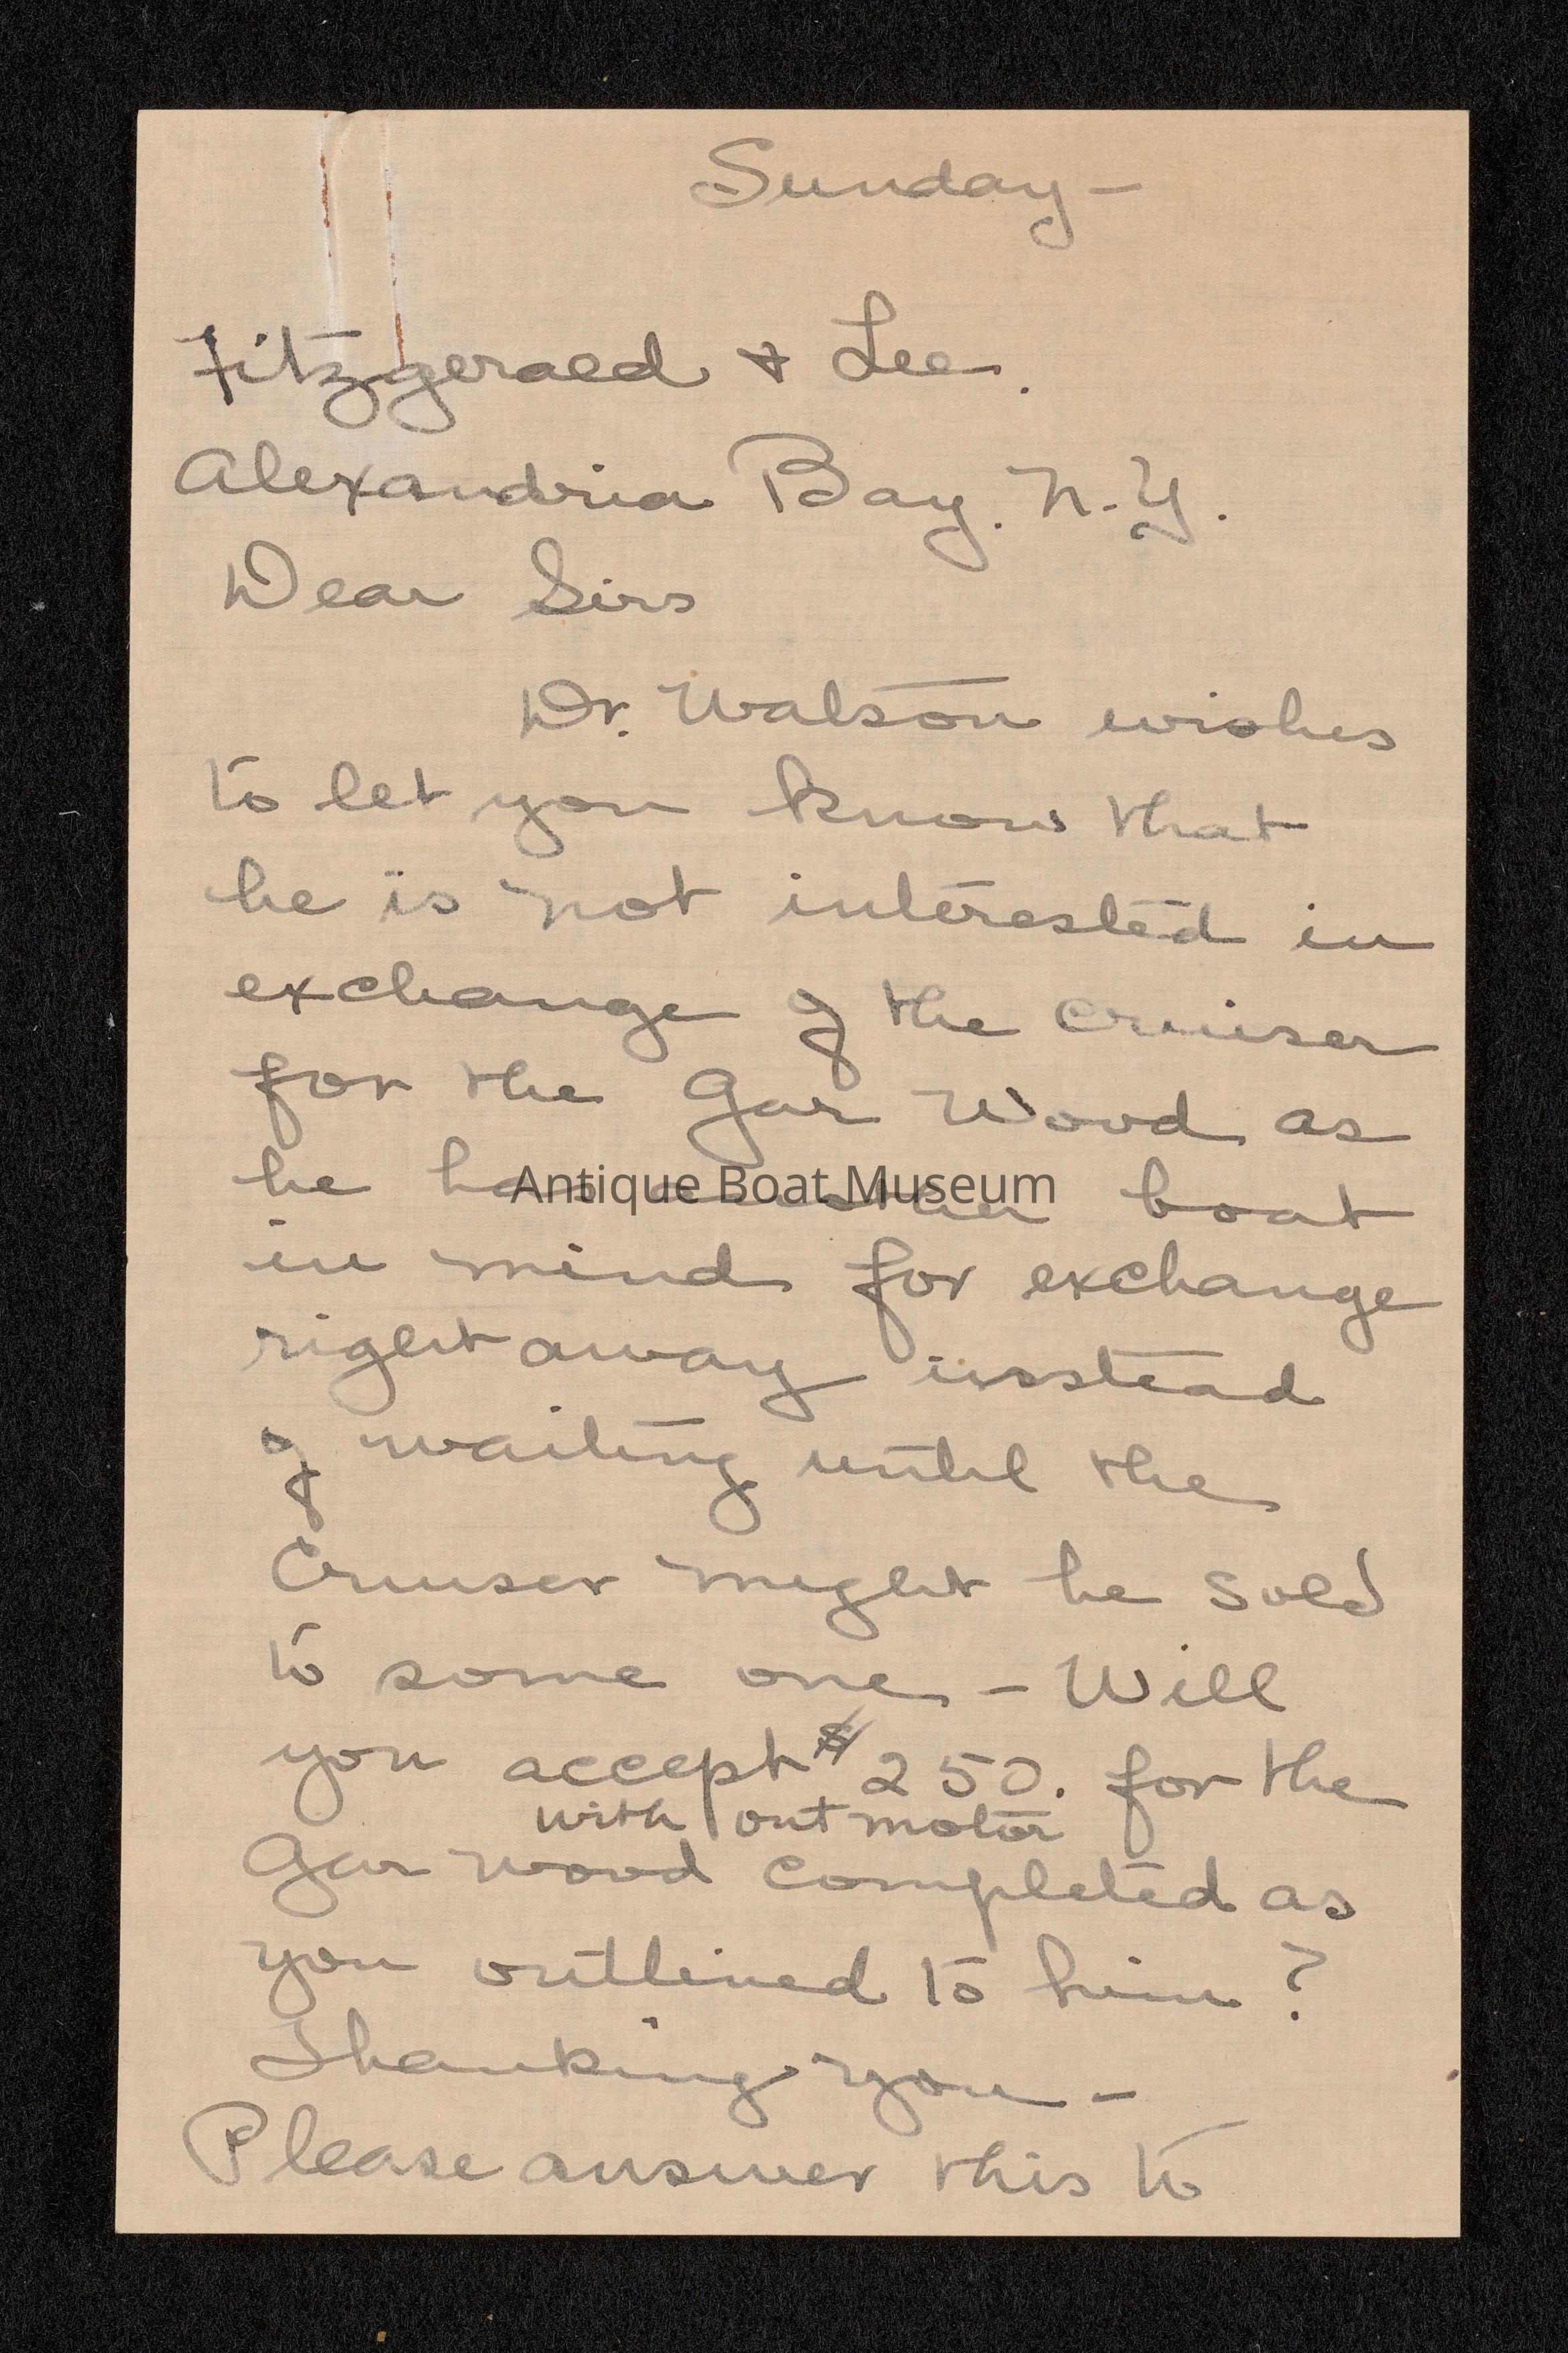 Sunday —
Fitzgerald & Lee.
Alexandria Bay. N.Y.
Dear Sirs
Dr. Watson wishes
to let you know that
he is not interested in
exchange of the cruiser
for the Gar Wood as
he has boat
Antique Boat Museum
in mind for exchange
right away insstead
of waiting until the
Cruiser might be sold
to some one — Will
you accept $250. for the
with out motor
Gar Wood completed as
you outlined to him?
Thanking you —
Please answer this to